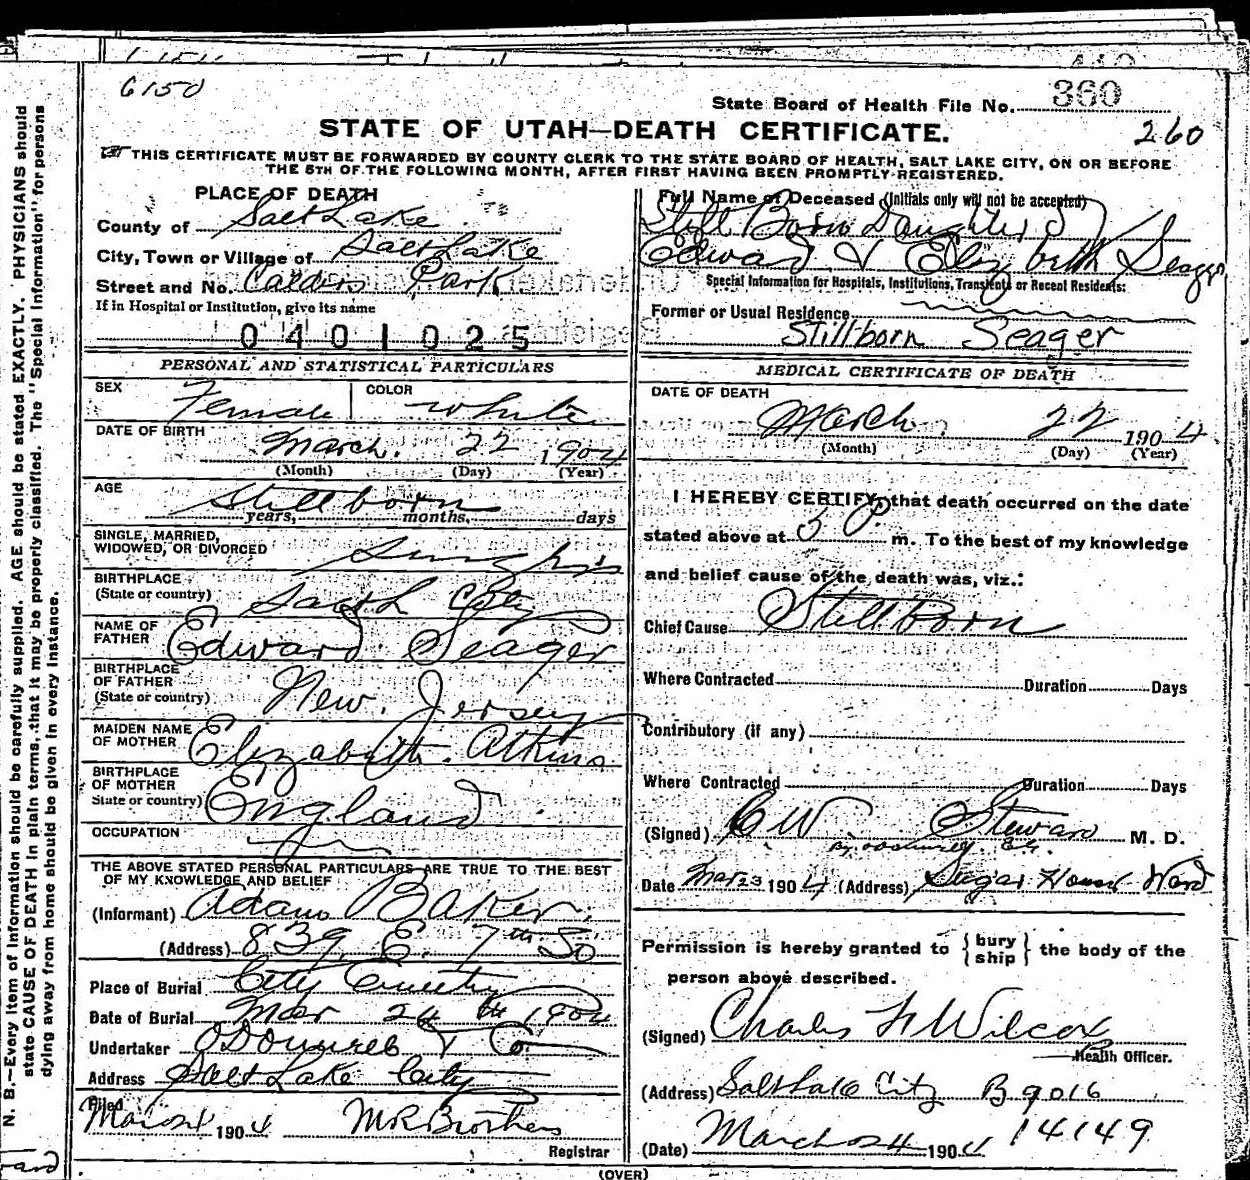 6150
State Board of Health File No. 360
STATE OF UTAH—DEATH CERTIFICATE.
260
THIS CERTIFICATE MUST BE FORWARDED BY COUNTY CLERK TO THE STATE BOARD OF HEALTH, SALT LAKE CITY, ON OR BEFORE
THE 5TH OF THE FOLLOWING MONTH, AFTER FIRST HAVING BEEN PROMPTLY REGISTERED.
N. B.—Every item of information should be carefully supplied. AGE should be stated EXACTLY. PHYSICIANS should
state CAUSE OF DEATH in plain terms, that it may be properly classified. The "Special Information" for persons
dying away from home should be given in every instance.
PLACE OF DEATH
County of Salt Lake
City, Town or Village of Salt Lake
Street and No. Calders Park
If in Hospital or Institution, give its name
0401025
PERSONAL AND STATISTICAL PARTICULARS
SEX Female COLOR White
DATE OF BIRTH March. 22 1904
(Month) (Day) (Year)
AGE Stillborn
years, months, days
SINGLE, MARRIED,
WIDOWED, OR DIVORCED Single
BIRTHPLACE
(State or country) Salt L City
NAME OF
FATHER Edward Seager
BIRTHPLACE
OF FATHER
(State or country) New Jersey
MAIDEN NAME
OF MOTHER Elizabeth Atkins
BIRTHPLACE
OF MOTHER
State or country) England
OCCUPATION
THE ABOVE STATED PERSONAL PARTICULARS ARE TRUE TO THE BEST
OF MY KNOWLEDGE AND BELIEF
(Informant) Adam Baker
(Address) 839 E. 7th So
Place of Burial City Cemetery
Date of Burial Mar 24th 1904
Undertaker O'Donnell & Co
Address Salt Lake City
Filed
Mar 24 1904 M R Brothers
Registrar
Full Name of Deceased (Initials only will not be accepted)
Still Born Daughter of
Edward & Elizabeth Seager
Special Information for Hospitals, Institutions, Transients or Recent Residents:
Former or Usual Residence
Stillborn Seager
MEDICAL CERTIFICATE OF DEATH
DATE OF DEATH
March 22 1904
(Month) (Day) (Year)
I HEREBY CERTIFY, that death occurred on the date
stated above at 5 P. m. To the best of my knowledge
and belief cause of the death was, viz.:
Chief Cause Stillborn
Where Contracted Duration Days
Contributory (if any)
Where Contracted Duration Days
(Signed) C W Stewart M. D.
Date Mar 23 1904 (Address) Sugar House Ward
Permission is hereby granted to { bury ship } the body of the
person above described.
(Signed) Charles F Wilcox
Health Officer.
(Address) Salt Lake City B 9016
(Date) March 24 1904 14149
(OVER)